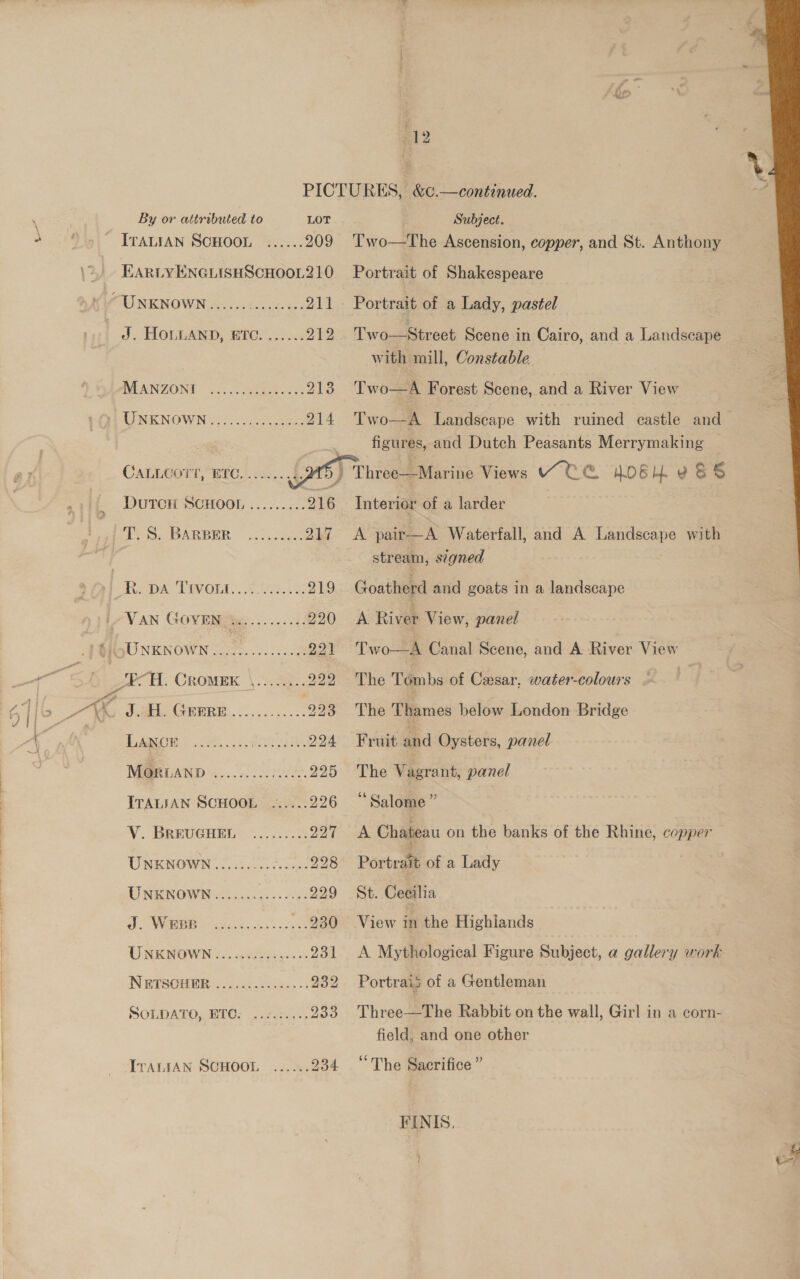 12
PICTURES, &c.—continued.
By or attributed to LOT Subject.
ITALIAN SCHOOL ......209 Two—The Ascension, copper, and St. Anthony
EARLYENGLISHSCHOOL210 Portrait of Shakespeare
UNKNOWN ...............211 Portrait of a Lady, pastel
J. HOLLAND, ETC. ......212 Two—Street Scene in Cairo, and a Landscape
with mill, Constable
MANZONI ...............213 Two—A Forest Scene, and a River View
UNKNOWN ...............214 Two—A Landscape with ruined castle and
figures, and Dutch Peasants Merrymaking
CALLCOTT, ETC. .........215 Three—Marine Views
DUTCH SCHOOL .........216 Interior of a larder
T. S. BARBER .........217 A pair—A Waterfall, and A Landscape with
stream, signed
R. DA TIVOLI ............219 Goatherd and goats in a landscape
VAN GOYEN ............220 A River View, panel
UNKNOWN ...............221 Two—A Canal Scene, and A River View
T. H. CROMEK .........222 The Tombs of Cæsar, water-colours
J. H. GEERE ............223 The Thames below London Bridge
LANCE ..................224 Fruit and Oysters, panel
MORLAND ...............225 The Vagrant, panel
ITALIAN SCHOOL ......226 “Salome”
V. BREUGHEL .........227 A Chateau on the banks of the Rhine, copper
UNKNOWN ...............228 Portrait of a Lady
UNKNOWN ...............229 St. Cecilia
J. WEBB ..................230 View in the Highlands
UNKNOWN ...............231 A Mythological Figure Subject, a gallery work
NETSCHER ...............232 Portrait of a Gentleman
SOLDATO, ETC. .........233 Three—The Rabbit on the wall, Girl in a corn-
field, and one other
ITALIAN SCHOOL ......234 “The Sacrifice”
FINIS.